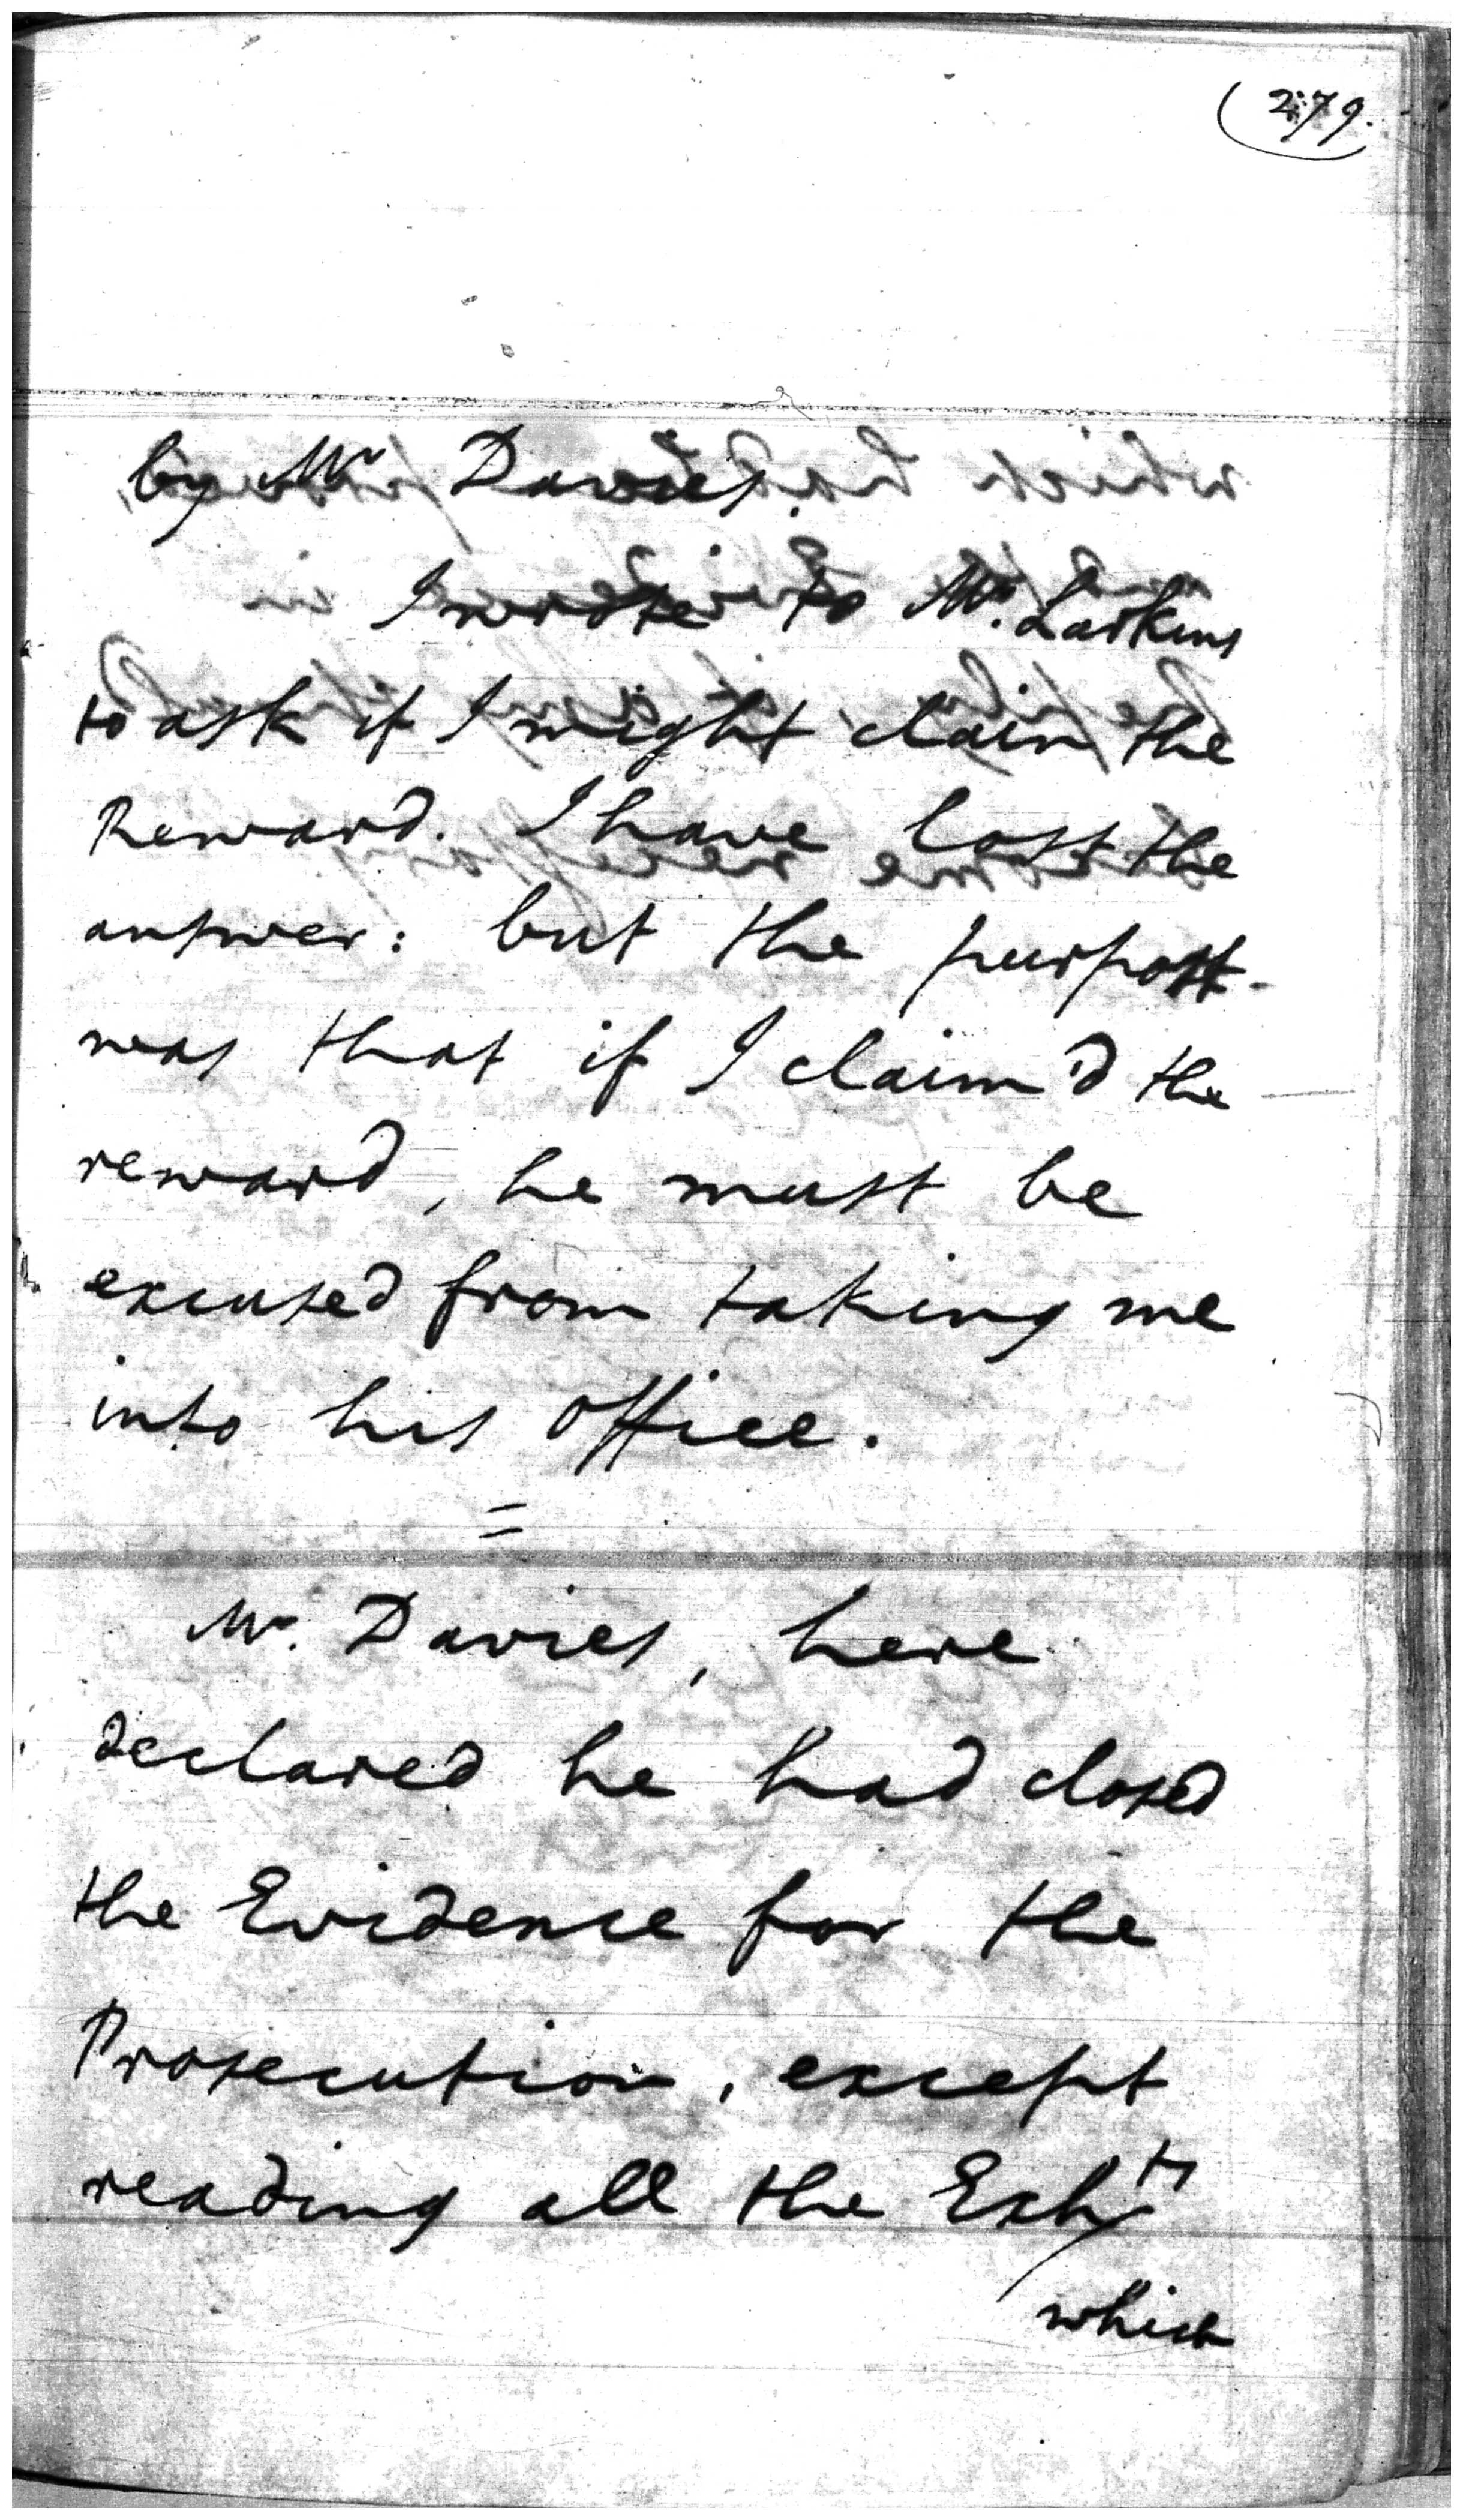 279.
by Mr Davies.
I wrote to Mr. Larkins
to ask if I might claim the
Reward. I have lost the
answer: but the purport
was that if I claim'd the
reward, he must be
excused from taking me
into his office.
=
Mr. Davies, here
declared he had closed
the Evidence for the
Prosecution, except
reading all the Exhts
which